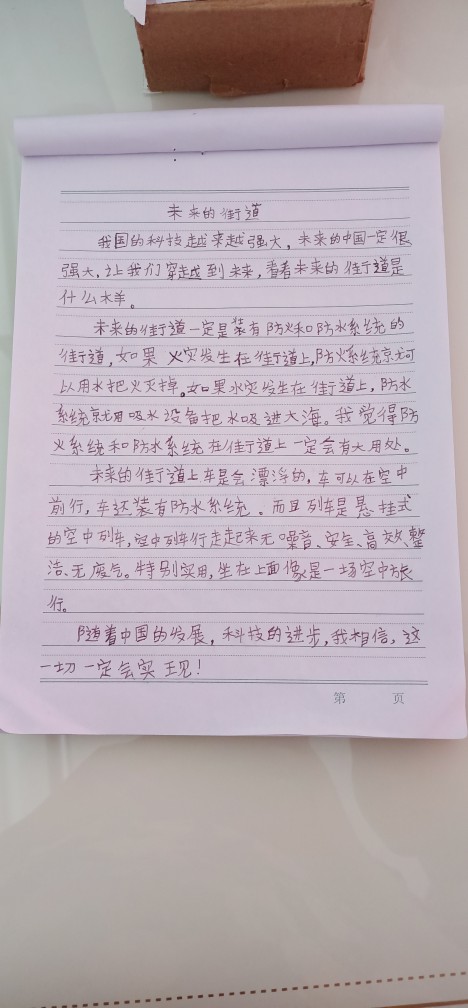 未来的街道
我国的科技越来越强大，未来的中国一定很
强大，让我们穿越到未来，看看未来的街道是
什么样。
未来的街道一定是装有防火和防水系统的
街道，如果火灾发生在街道上，防火系统就可
以用水把火灭掉。如果水灾发生在街道上，防水
系统就用吸水设备把水吸进大海。我觉得防
火系统和防水系统在街道上一定会有大用处。
未来的街道上车是会漂浮的，车可以在空中
前行，车还装有防水系统。而且列车是悬挂式
的空中列车，空中列车行走起来无噪音、安全、高效、整
洁、无废气。特别实用，坐在上面像是一场空中旅
行。
随着中国的发展，科技的进步，我相信，这
一切一定会实现！
第 页